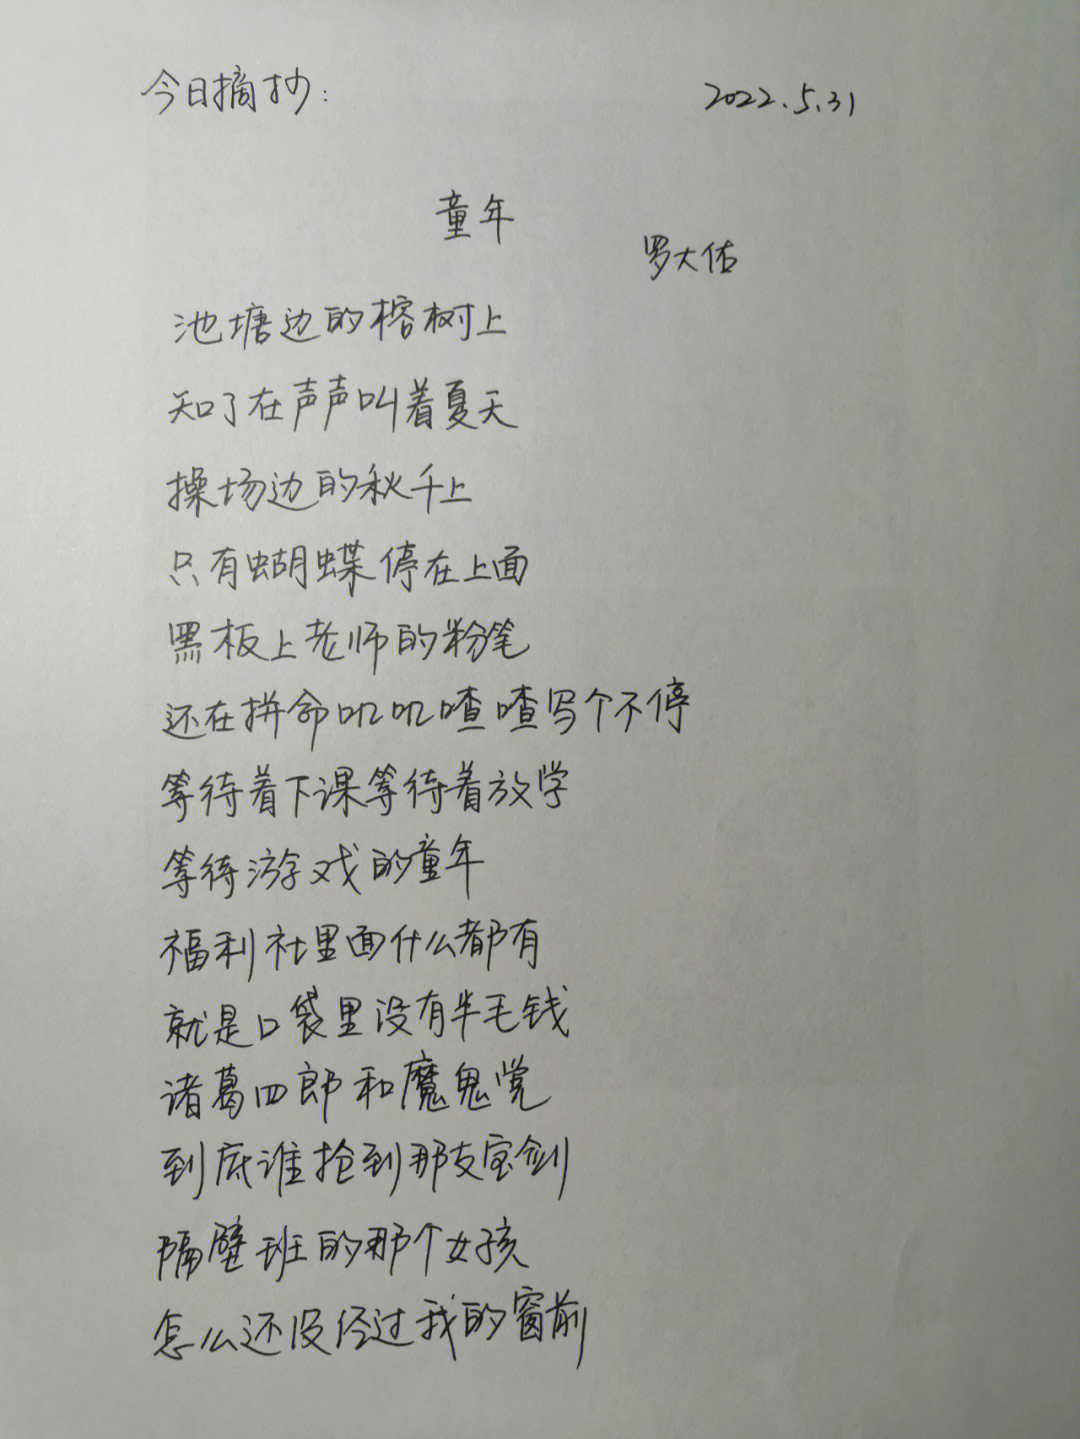 今日摘抄：
2022.5.31
童年
罗大佑
池塘边的榕树上
知了在声声叫着夏天
操场边的秋千上
只有蝴蝶停在上面
黑板上老师的粉笔
还在拼命叽叽喳喳写个不停
等待着下课等待着放学
等待游戏的童年
福利社里面什么都有
就是口袋里没有半毛钱
诸葛四郎和魔鬼党
到底谁抢到那支宝剑
隔壁班的那个女孩
怎么还没经过我的窗前